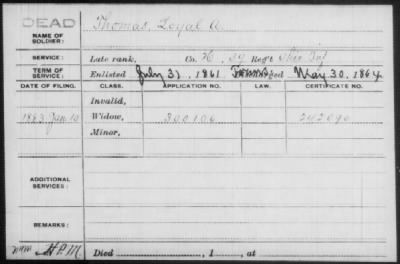 DEAD
NAME OF SOLDIER: Thomas, Loyal A.
SERVICE: Late rank, Co. H, 39 Reg't Ohio Inf
TERM OF SERVICE: Enlisted July 31, 1861 May 30, 1864
DATE OF FILING. CLASS. APPLICATION NO. LAW. CERTIFICATE NO.
Invalid,
1883 Jan 10 Widow, 300106 242090
Minor,
ADDITIONAL SERVICES:
REMARKS:
H.P.M. Died , 1 , at